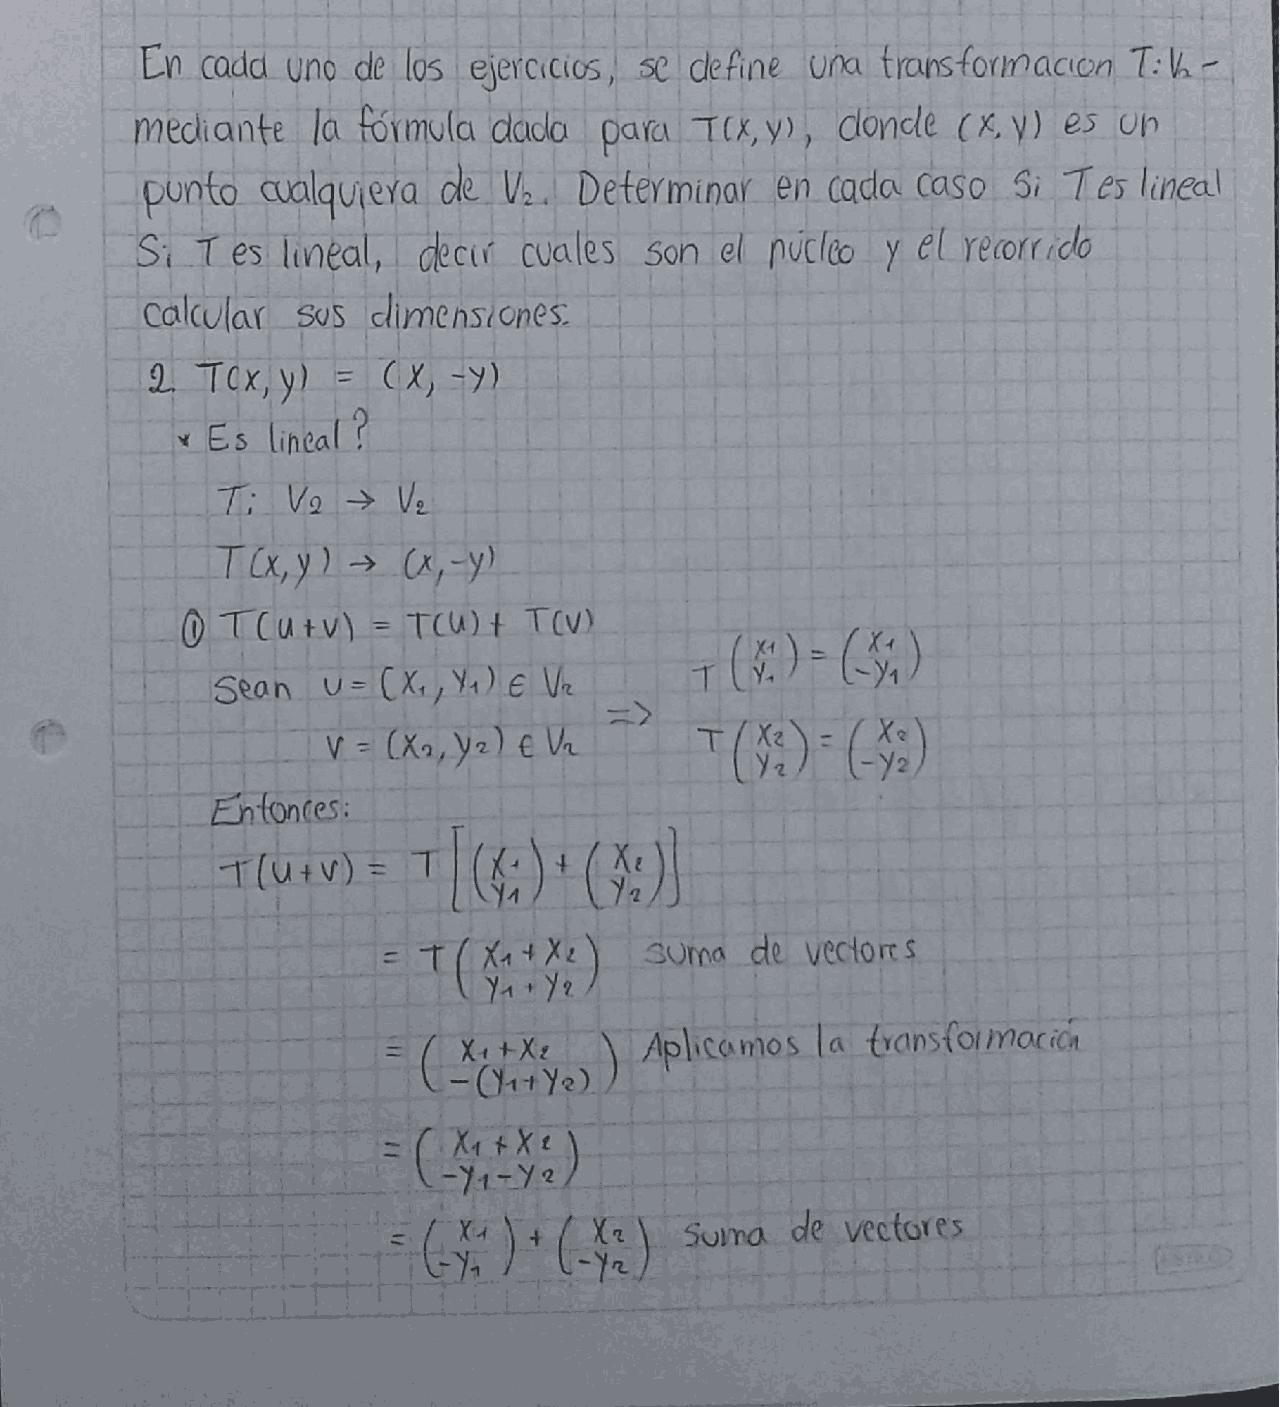 En cada uno de los ejercicios, se define una transformacion T: V₂ -
mediante la fórmula dada para T(x, y), donde (x, y) es un
punto cualquiera de V₂. Determinar en cada caso si T es lineal
Si T es lineal, decir cuales son el núcleo y el recorrido
calcular sus dimensiones.
2. T(x, y) = (x, -y)
* Es lineal?
T: V₂ → V₂
T(x, y) → (x, -y)
① T(u+v) = T(u) + T(v)
Sean u = (x₁, y₁) ∈ V₂ => T(x₁ y₁) = (x₁ -y₁)
v = (x₂, y₂) ∈ V₂ T(x₂ y₂) = (x₂ -y₂)
Entonces:
T(u+v) = T[(x₁ y₁) + (x₂ y₂)]
= T(x₁+x₂ y₁+y₂) suma de vectores
= (x₁+x₂ -(y₁+y₂)) Aplicamos la transformación
= (x₁+x₂ -y₁-y₂)
= (x₁ -y₁) + (x₂ -y₂) suma de vectores